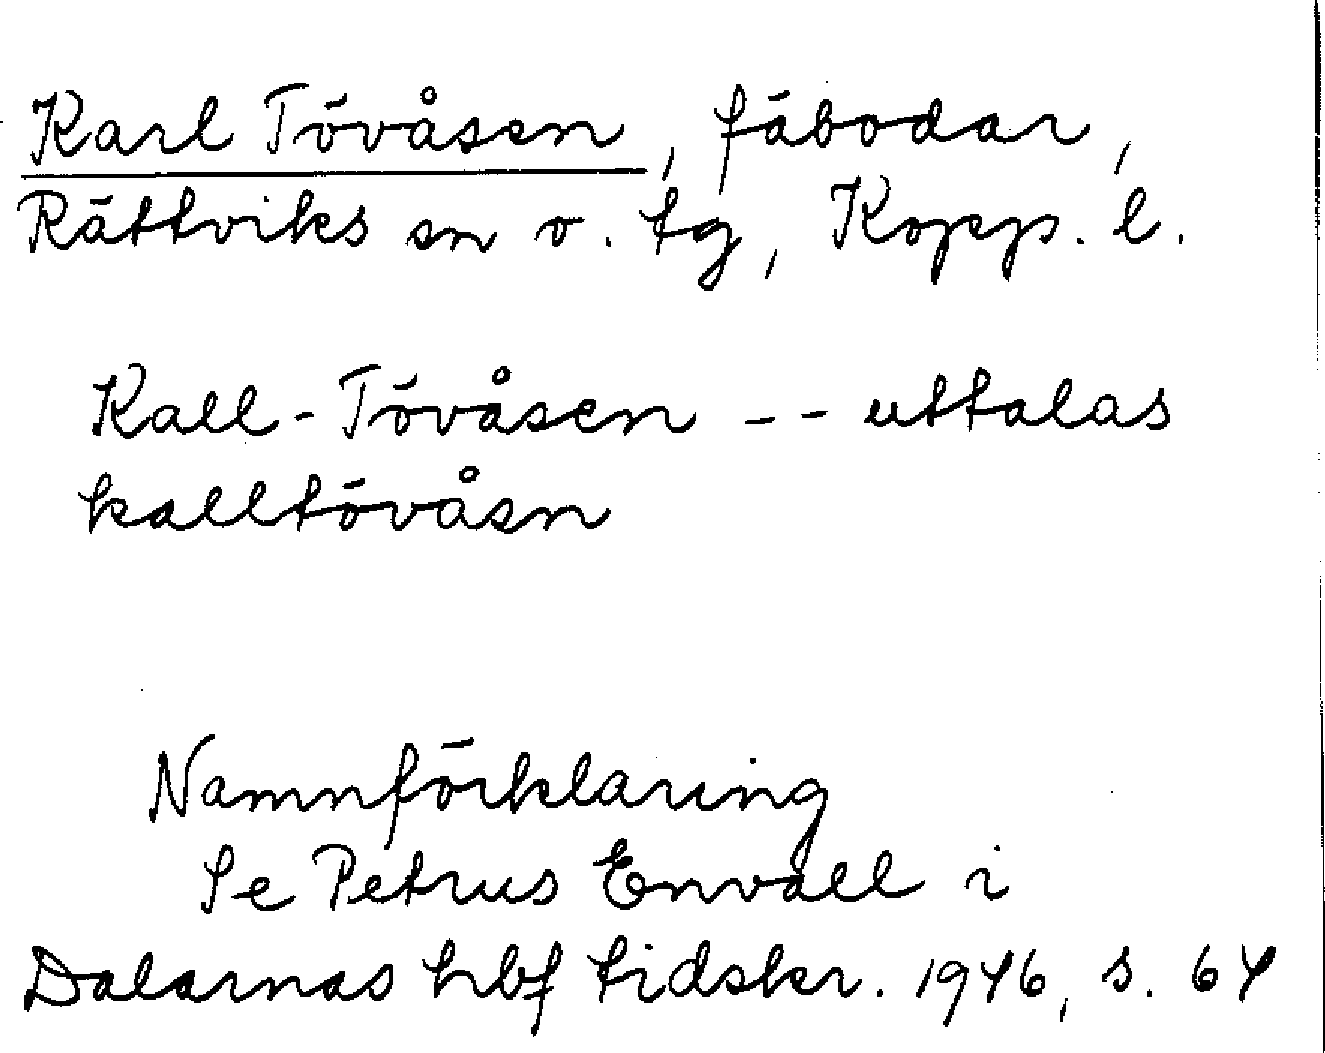 Karl Tövåsen, fäbodar,
Rättviks sn o. tg, Kopp. l.
Kall-Tövåsen -- uttalas
kalltövåsn
Namnförklaring
Se Petrus Envall i
Dalarnas hbf tidskr. 1946, s. 64